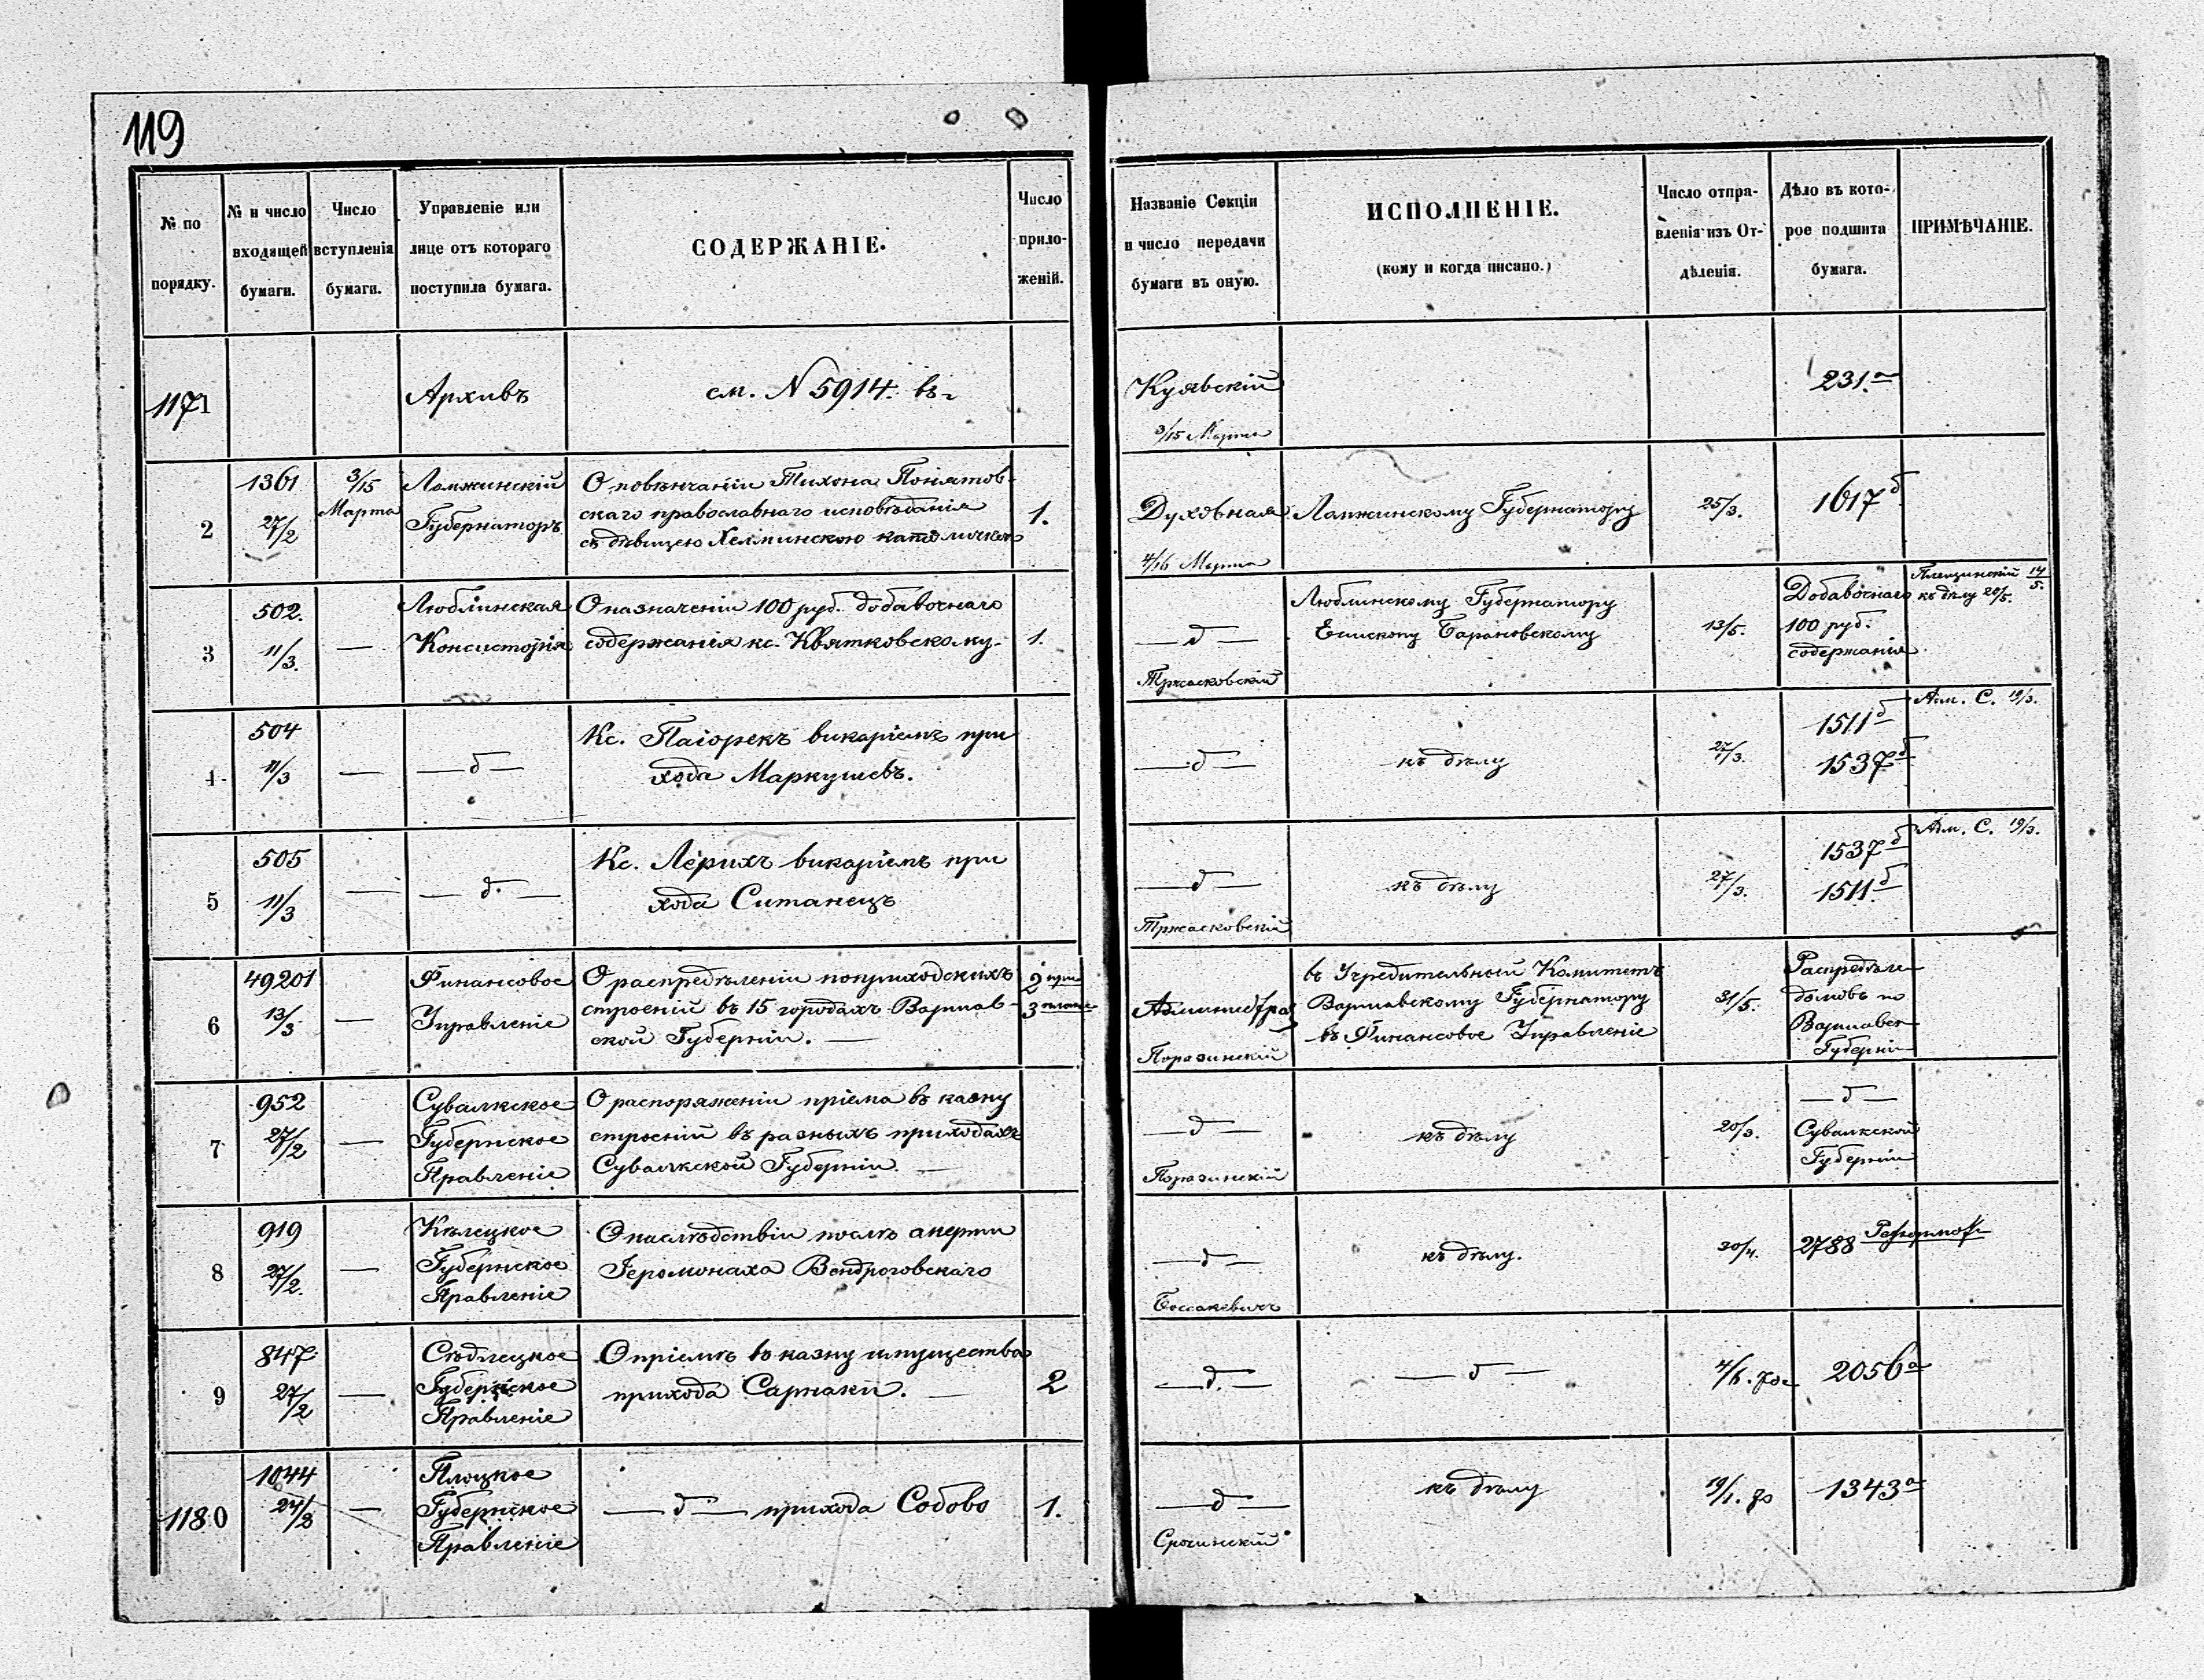 119
№ по порядку.
№ и число входящей бумаги.
Число вступленія бумаги.
Управленіе или лице отъ котораго поступила бумага.
СОДЕРЖАНІЕ.
Число приложеній.
Названіе Секціи и число передачи бумаги въ оную.
ИСПОЛНЕНІЕ.
(кому и когда писано.)
Число отправленія изъ Отдѣленія.
Дѣло въ которое подшита бумага.
ПРИМѢЧАНІЕ.
1171
Архивъ
см. N 5914. въ
Куявскій
3/15 Марта
231.а
2
1361
27/2
3/15
Марта
Ломжинскій
Губернаторъ
О повѣнчаніи Тихона Понятов-
скаго православнаго исповѣданія
съ дѣвицею Хелминскою католичкою
1.
Духовная
4/16 Марта
Ломжинскому Губернатору
25/3.
1617 б
3
502.
11/3.
—
Люблинская
Консисторія
О назначеніи 100 руб. добавочнаго
содержанія кс. Квятковскому.
1.
— д —
Тржасковскій
Люблинскому Губернатору
Епископу Барановскому
13/5.
Добавочнаго
100 руб.
содержанія
къ дѣлу 20/5.
14/5.
4
504
11/3
—
— д —
Кс. Пагорекъ викаріемъ при
хода Маркушевъ.
— д —
къ дѣлу
27/3.
1511 б
1537 б
Адм. С. 19/3.
5
505
11/3
—
— д. —
Кс. Лерихъ викаріемъ при
хода Ситанецъ
— д —
Тржасковскій
къ дѣлу
27/3.
1537 б
1511 б
Адм. С. 19/3.
6
49201
13/3
—
Финансовое
Управленіе
О распредѣленіи поприходскихъ
строеній въ 15 городахъ Варшав-
ской Губерніи. —
2 при
3 плана
Поразинскій
въ Учредительный Комитетъ
Варшавскому Губернатору
въ Финансовое Управленіе
31/5.
Распредѣле
домовъ по
Варшавск
Губерніи
7
952
27/2
—
Сувалкское
Губернское
Правленіе
О распоряженіи пріема въ казну
строеній въ разныхъ приходахъ
Сувалкской Губерніи. —
— д —
Поразинскій
къ дѣлу
20/3.
— д —
Сувалкской
Губерніи
8
919
27/2.
—
Кѣлецкое
Губернское
Правленіе
О наслѣдствіи послѣ смерти
Іеромонаха Вендроговскаго
— д —
къ дѣлу.
30/4.
2788
9
847
27/2
—
Сѣдлецкое
Губернское
Правленіе
О пріемѣ въ казну имущества
прихода Сарнаки. —
2
— д. —
— д —
4/6. 70
2056 а
1180
1044
24/2
—
Плоцкое
Губернское
Правленіе
— д — прихода Собово
1.
— д —
Срочинскій
къ дѣлу
19/1. 70
1343 а